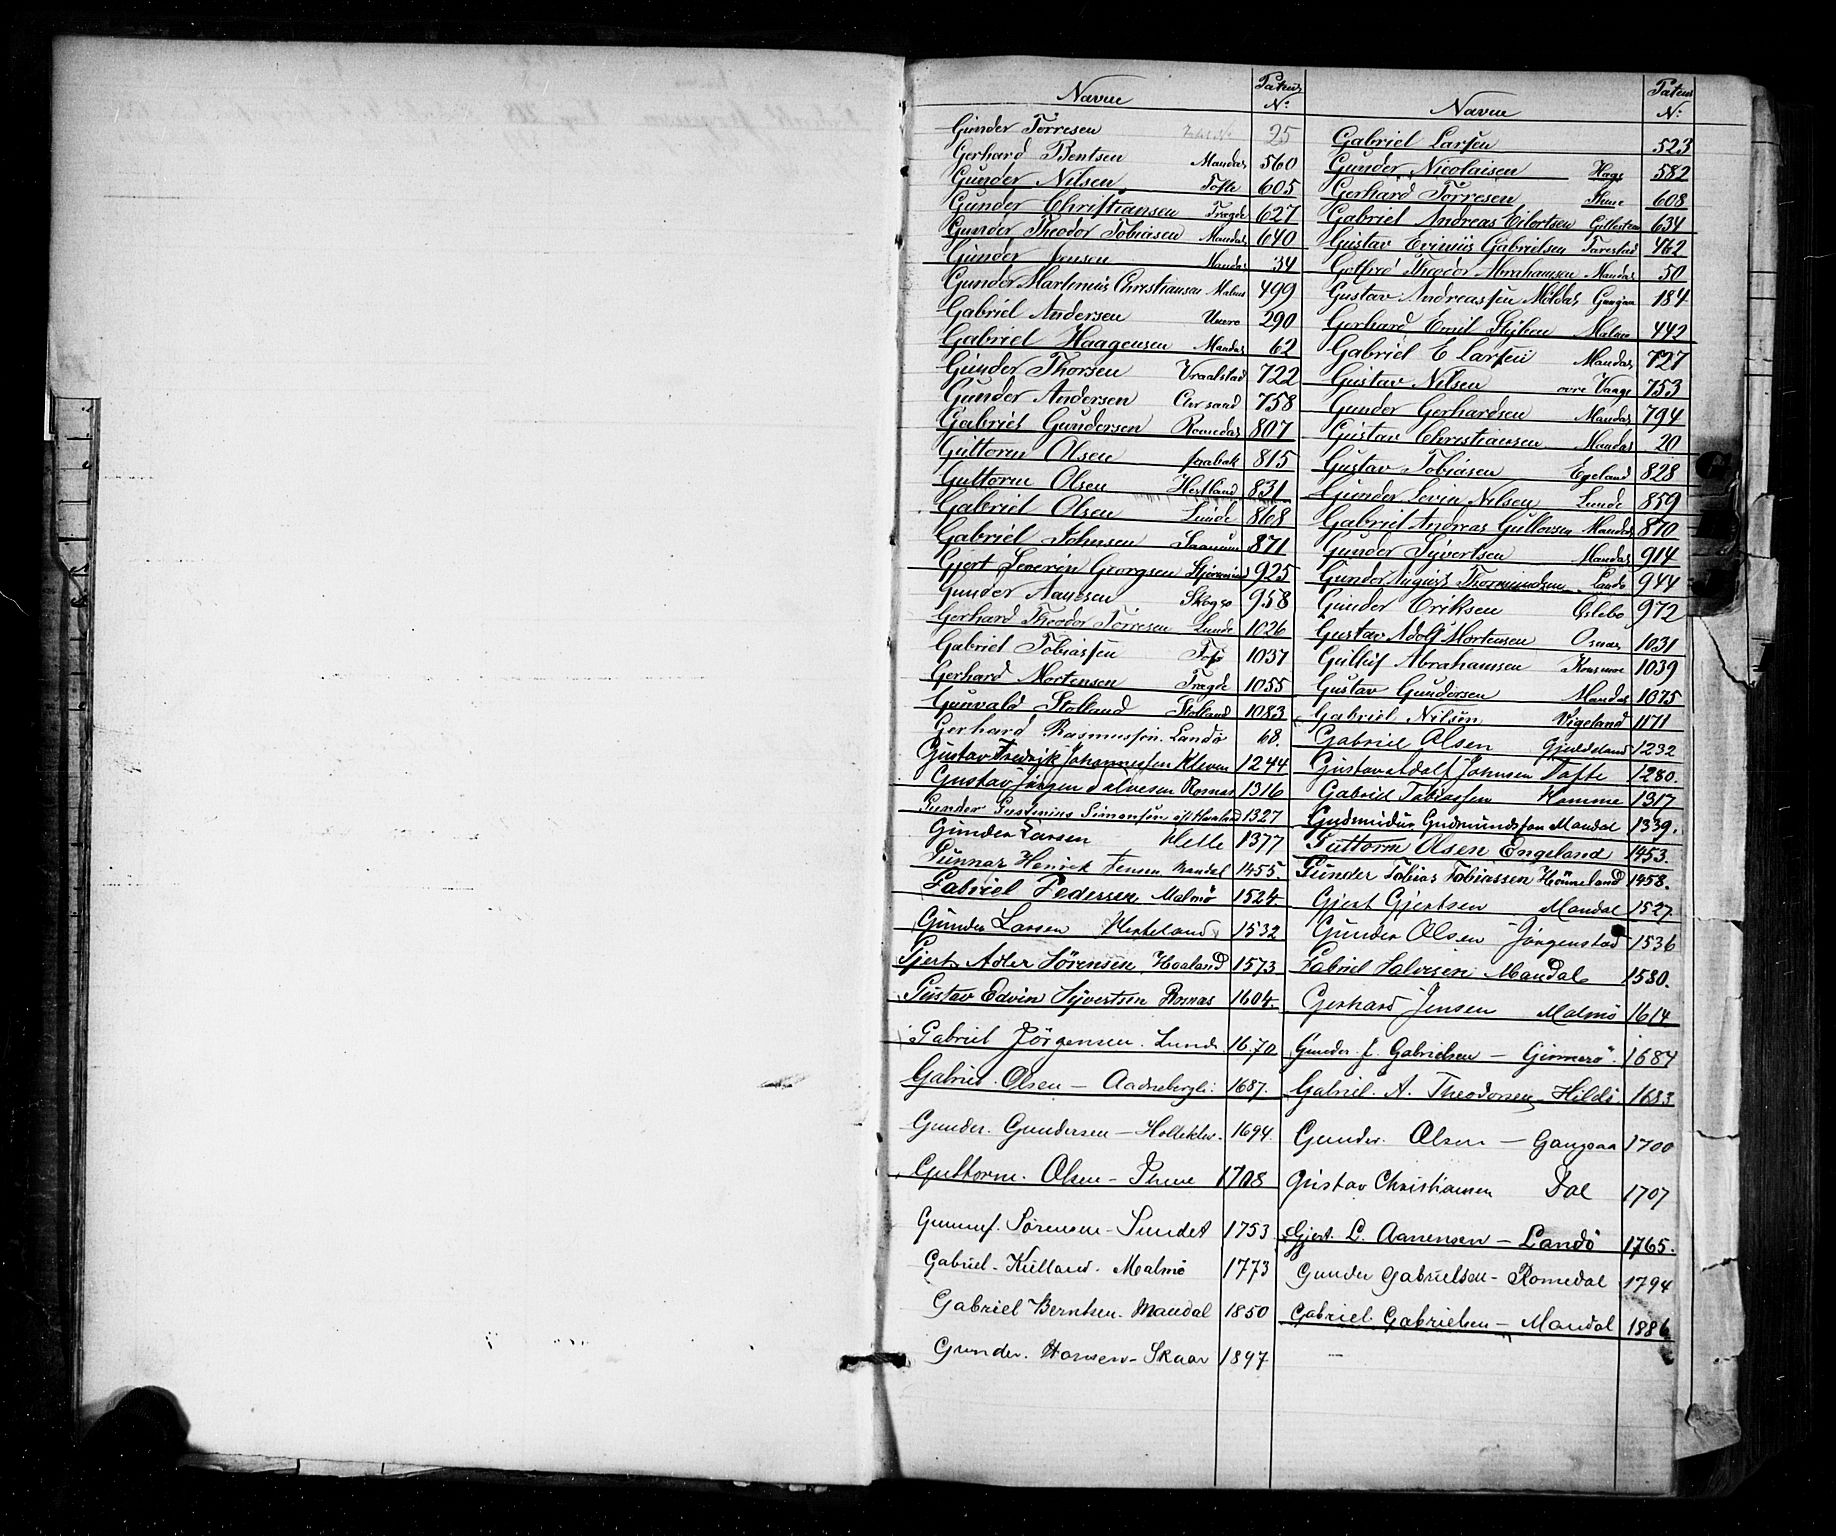 Navne Patent N:
Gunder Torresen 25
Gerhard Bentsen Mandal 560
Gunder Nilsen Tofte 605
Gunder Christiansen Tregde 627
Gunder Theodor Tobiasen Mandal 640
Gunder Jensen Mandal 34
Gunder Martinius Christiansen Malmø 499
Gabriel Andersen 290
Gabriel Haagensen Mandal 62
Gunder Thorsen Vraalstad 722
Gunder Andersen Chrsand 758
Gabriel Gundersen Romedal 807
Guttorm Olsen 815
Guttorm Olsen Hestland 831
Gabriel Olsen Lunde 868
Gabriel Johnsen Saanum 871
Gjert Severin Georgsen 925
Gunder Aanesen Skogsø 958
Gerhard Theodor Torresen Lunde 1026
Gabriel Tobiassen 1037
Gerhard Mortensen Tregde 1055
Gunvald Stolland Stolland 1083
Gerhard Rasmussen. Landø 68.
Gustav Fredrik Johannessen Kleven 1244
Gustav Jørgen Salvesen Rosnæs 1316
Gunder Simonsen 1327
Gunder Larsen Helle 1377
Gunnar Henrik Jensen Mandal 1455.
Gabriel Pedersen Malmö 1524.
Gunder Larsen 1532
Gjert Adler Sørensen, Haaland 1573
Gustav Edvin Syvertsen Rosnæs 1604.
Gabriel Jörgensen. Lunde 1670
Gabriel. Olsen – 1687.
Gunder. Gundersen – 1694
Guttorm. Olsen – Thue 1708
Sørensen – Sundet 1753
Gabriel – Malmö 1773
Gabriel Berntsen. Mandal 1850
Gunder. Hansen – Skaar 1897
Navne Patent N:
Gabriel Larsen 523
Gunder Nicolaisen Hage 582
Gerhard Torresen Thue 608
Gabriel Andreas Eilertsen 634
Gustav Gabrielsen Tarestad 462
Theodor Abrahamsen Mandal 50
Gustav Andreassen 184
Gerhard Emil Malmø 442
Gabriel E Larsen Mandal 727
Gustav Nilsen øvre Vaage 753
Gunder Gerhardsen Mandal 794
Gustav Christiansen Mandal 20
Gustav Tobiasen Egeland 828
Gunder Levin Nilsen Lunde 859
Gabriel Andreas Gullovsen Mandal 870
Gunder Syvertsen Mandal 914
Gunder August Thormundsen Landø 944
Gunder Eriksen Øslebø 972
Gustav Adolf Mortensen Osnæs 1031
Abrahamsen Konsmoe 1039
Gustav Gundersen Mandal 1075
Gabriel Nilsen Vigeland 1171
Gabriel Olsen 1232
Gustav Adolf Johnsen Tofte 1280.
Gabriel Tobiassen Homme 1317
Gudmundur Gudmundsson Mandal 1339.
Guttorm Olsen Engeland 1453.
Gunder Tobias Tobiassen Hønneland 1458.
Gjert Gjertsen Mandal 1527.
Gunder Olsen Jørgenstad 1536
Gabriel Salvesen Mandal 1580.
Gerhard Jensen Malmö 1614
Gunder. J. Gabrielsen – 1684
Gabriel. A. Theodorsen – Hilde 1683
Gunder. Olsen – Gangsaa 1700
Gustav Christiansen Dal 1707
Gjert. L. Aanensen – Landö 1765.
Gunder Gabrielsen – Romedal 1794
Gabriel Gabrielsen – Mandal 1886
G